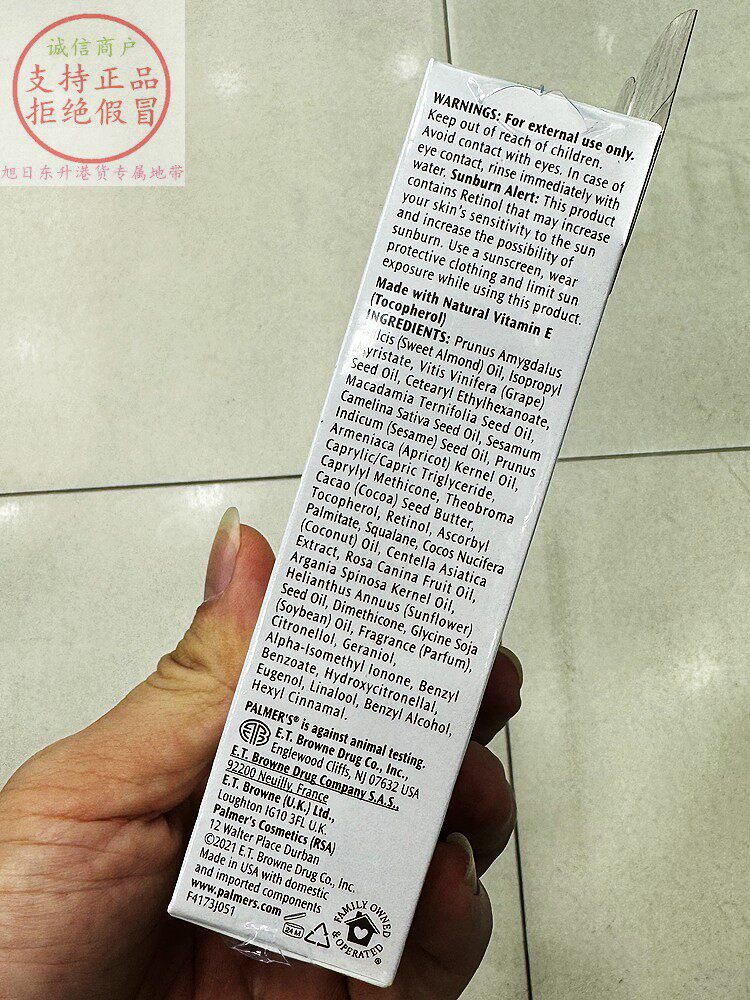 诚信商户
支持正品
拒绝假冒
旭日东升港货专属地带
WARNINGS: For external use only.
Keep out of reach of children.
Avoid contact with eyes. In case of
eye contact, rinse immediately with
water. Sunburn Alert: This product
contains Retinol that may increase
your skin's sensitivity to the sun
and increase the possibility of
sunburn. Use a sunscreen, wear
protective clothing and limit sun
exposure while using this product.
Made with Natural Vitamin E
(Tocopherol)
INGREDIENTS: Prunus Amygdalus
lcis (Sweet Almond) Oil, Isopropyl
Myristate, Vitis Vinifera (Grape)
Seed Oil, Cetearyl Ethylhexanoate,
Macadamia Ternifolia Seed Oil,
Camelina Sativa Seed Oil, Sesamum
Indicum (Sesame) Seed Oil, Prunus
Armeniaca (Apricot) Kernel Oil,
Caprylic/Capric Triglyceride,
Caprylyl Methicone, Theobroma
Cacao (Cocoa) Seed Butter,
Tocopherol, Retinol, Ascorbyl
Palmitate, Squalane, Cocos Nucifera
(Coconut) Oil, Centella Asiatica
Extract, Rosa Canina Fruit Oil,
Argania Spinosa Kernel Oil,
Helianthus Annuus (Sunflower)
Seed Oil, Dimethicone, Glycine Soja
(Soybean) Oil, Fragrance (Parfum),
Citronellol, Geraniol,
Alpha-Isomethyl Ionone, Benzyl
Benzoate, Hydroxycitronellal,
Eugenol, Linalool, Benzyl Alcohol,
Hexyl Cinnamal.
PALMER'S® is against animal testing.
ETB E.T. Browne Drug Co., Inc.,
Englewood Cliffs, NJ 07632 USA
E.T. Browne Drug Company S.A.S.,
92200 Neuilly, France
E.T. Browne (U.K.) Ltd.,
Loughton IG10 3FL U.K.
Palmer's Cosmetics (RSA)
12 Walter Place Durban
©2021 E.T. Browne Drug Co., Inc.
Made in USA with domestic
and imported components
www.palmers.com
F4173J051
24 M
FAMILY OWNED
& OPERATED®